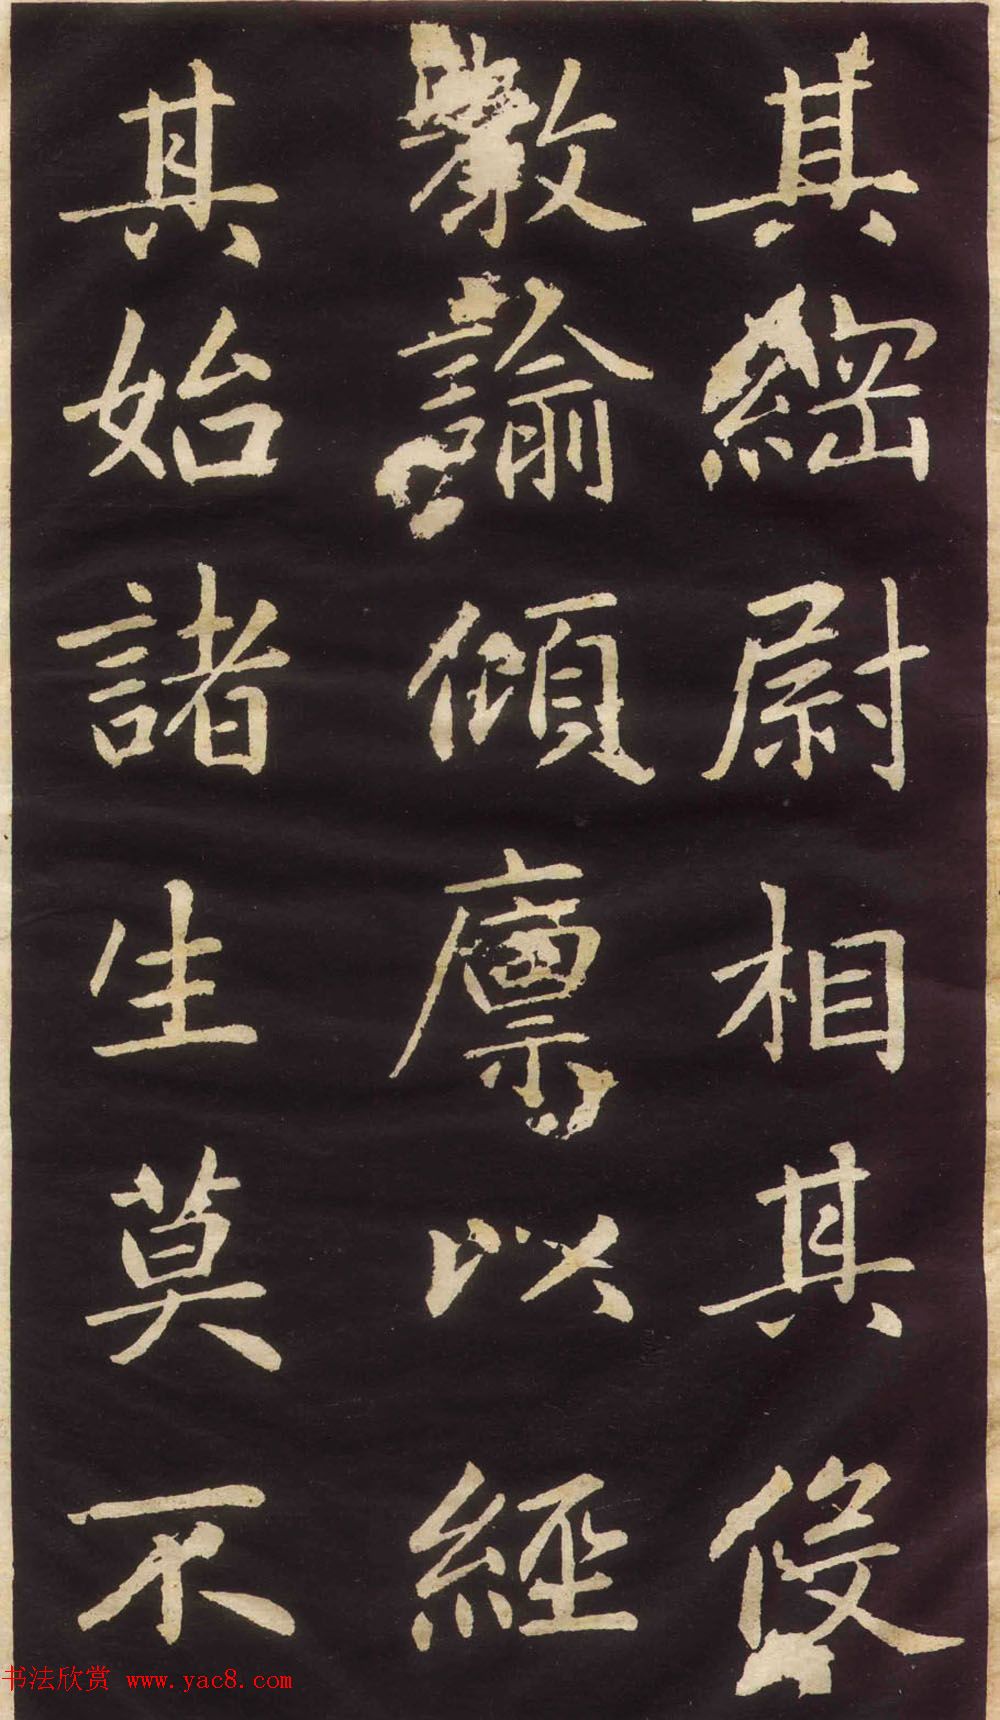 其綱尉相其役
諭傾廪以經
其始諸生莫不
书法欣赏 www.yac8.com